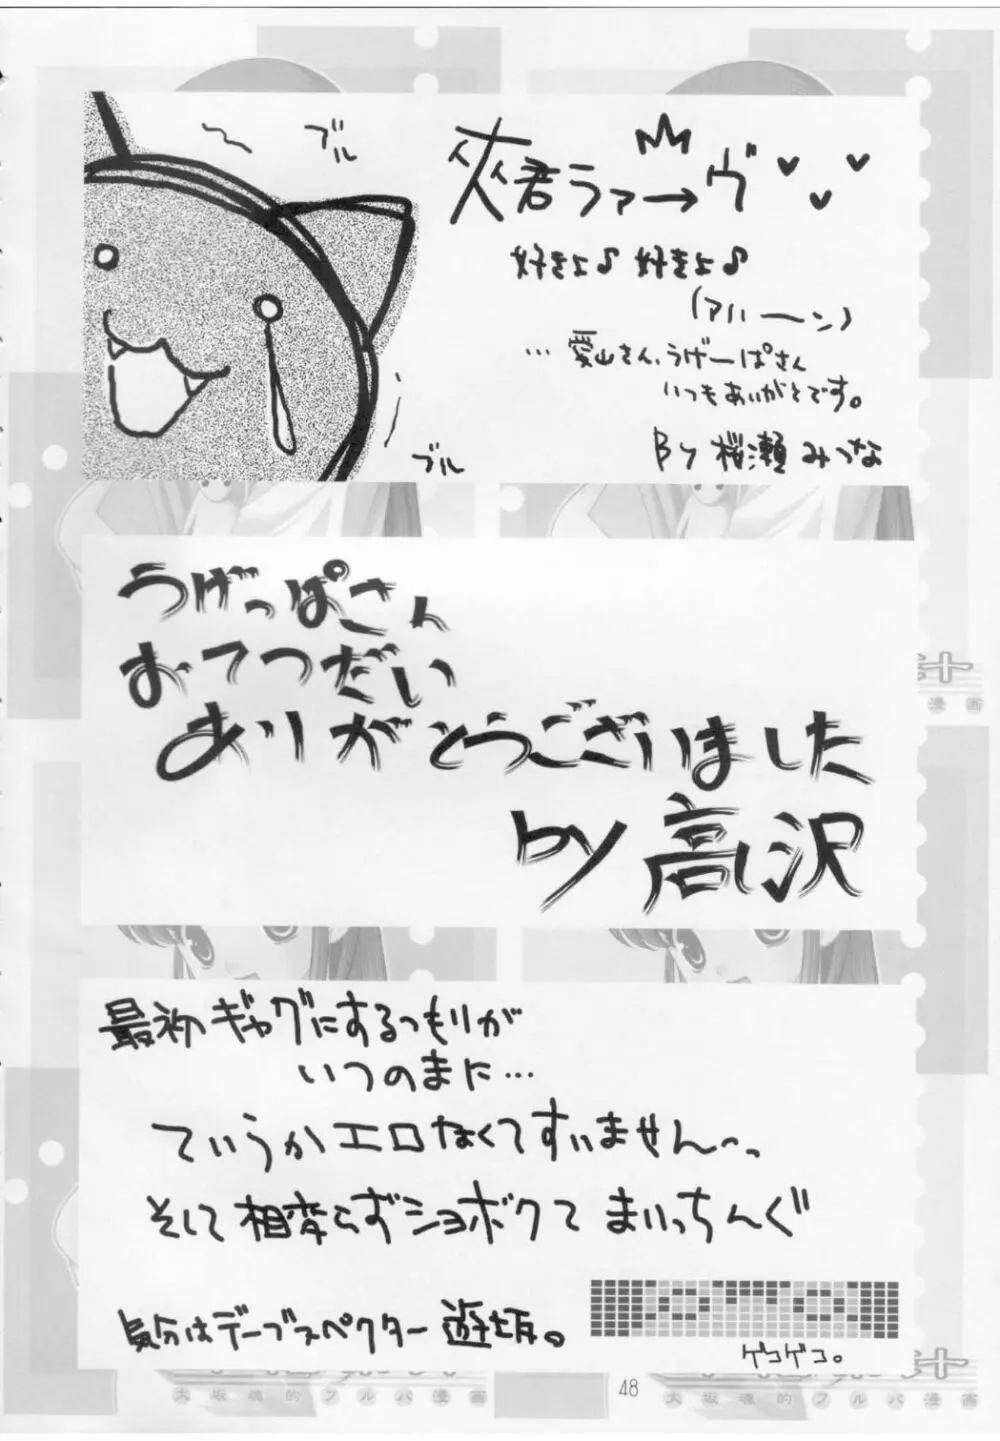 ブル
夾君ラァーーヴ
好きよ♪ 好きよ♪
(アハーーン)
… 愛山さん、うげーぱさん
いつもありがとです。
By 桜瀬みつな
ブル
うげっぱさん
おてつだい
ありがとうございました
by 高沢
最初ギャグにするつもりが
いつのまに…
ていうかエロなくてすいません~っ
そして相変らずショボクて まいっちんぐ
気分はデーブスペクター 遊坂。
ゲコゲコ。
汁
漫画
48
大坂魂的フルバ漫画
大坂魂的フルバ漫画